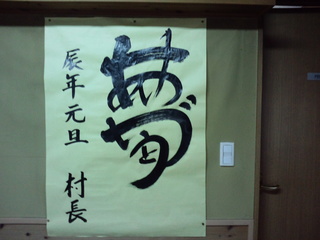 夢
辰年元旦 村長